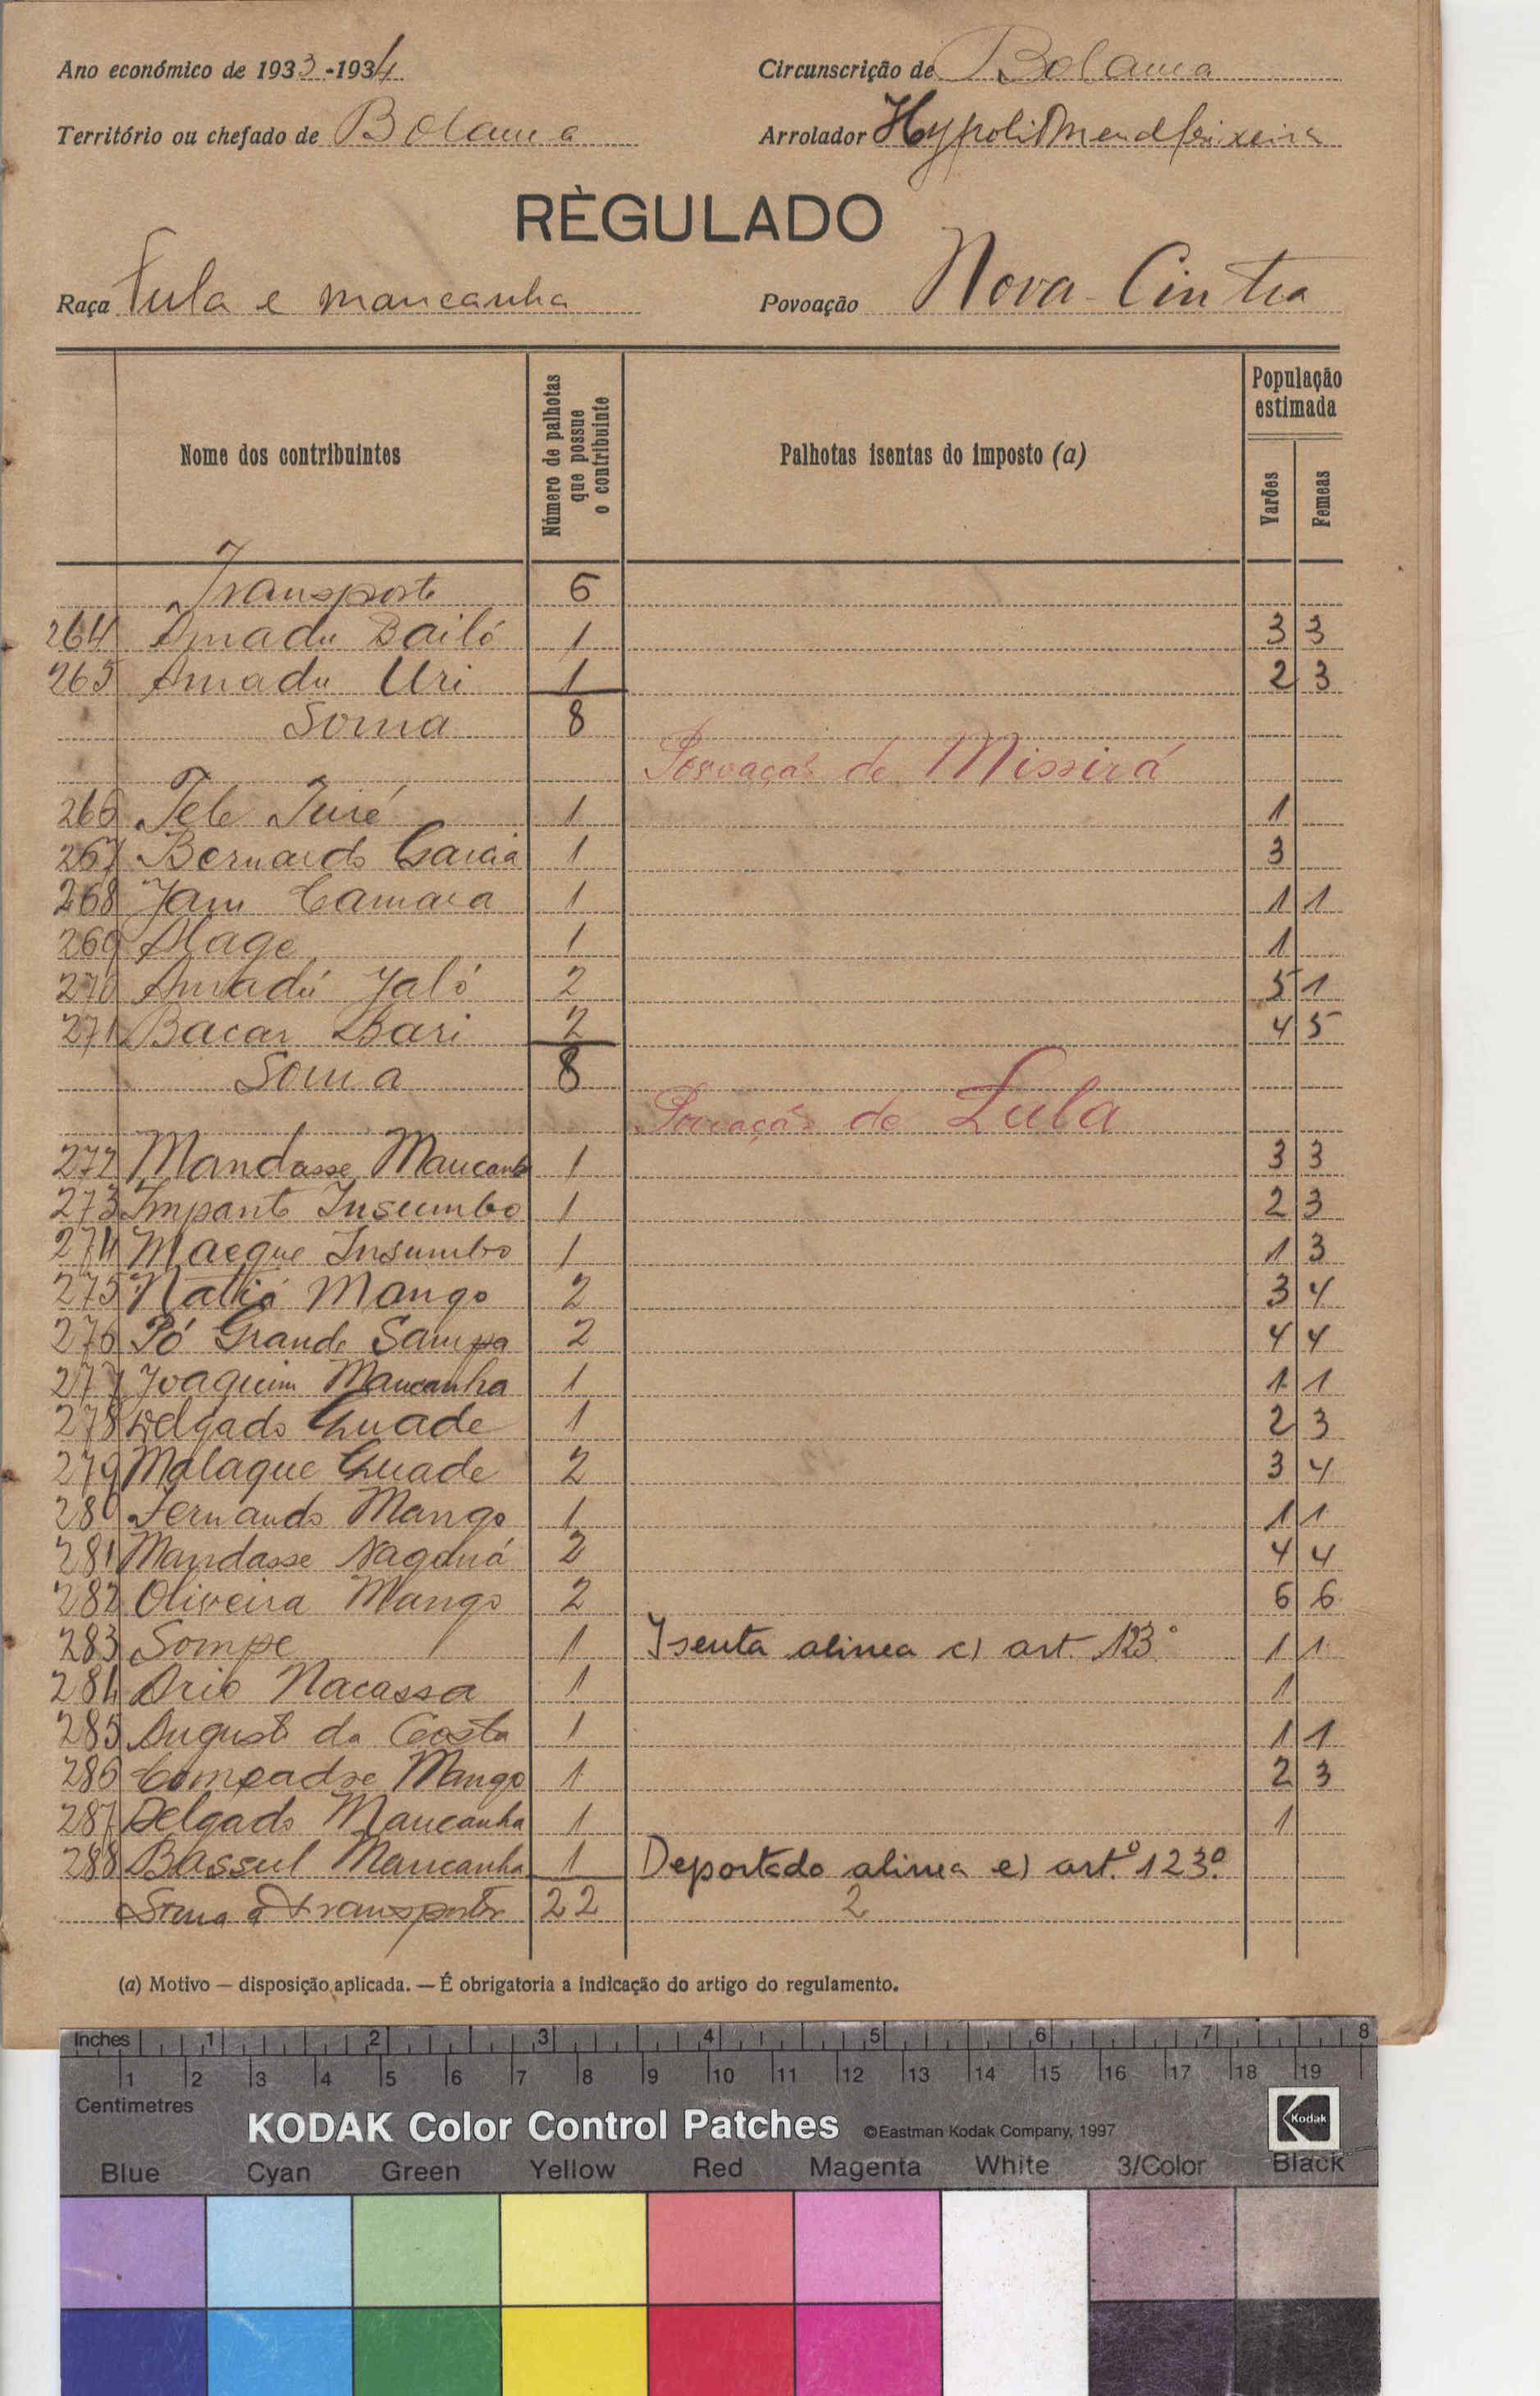 Ano económico de 1933-1934 Circunscrição de Bolama
Território ou chefado de Bolama Arrolador
RÈGULADO
Raça Fula e mancanha Povoação Nova-Cintra
Nome dos contribuintes Número de palhotas que possue o contribuinte Palhotas isentas do imposto (a) População estimada Varões Femeas
Transporte 6
264 Amadu Bailó 1 3 3
265 Amadu Uri 1 2 3
Soma 8
Povoação de Missirá
266 Tele Turé 1 1
267 Bernardo Garcia 1 3
268 Jam Camara 1 1 1
269 Alage 1 1
270 Amadú Jaló 2 5 1
271 Bacar Bari 2 4 5
Soma 8
Povoação de Lula
272 Mandasse Mancanha 1 3 3
273 Impanto Insumbo 1 2 3
274 Maeque Insumbo 1 1 3
275 Natió Mango 2 3 4
276 Pó Grande Sampa 2 4 4
277 Joaquim Mancanha 1 1 1
278 Delgado Guade 1 2 3
279 Malaque Guade 2 3 4
280 Fernando Mango 1 1 1
281 Mandasse 2 4 4
282 Oliveira Mango 2 6 6
283 Sompe 1 Isenta alinea c) art. 123º 1 1
284 Nacassa 1 1
285 Augusto da Costa 1 1 1
286 Compadre Mango 1 2 3
287 Delgado Mancanha 1 1
288 Bassul Mancanha 1 Deportado alinea e) artº 123º
Soma e transporte 22 2
(a) Motivo — disposição aplicada. — É obrigatoria a indicação do artigo do regulamento.
Inches 1 2 3 4 5 6 7 8
1 2 3 4 5 6 7 8 9 10 11 12 13 14 15 16 17 18 19
Centimetres
KODAK Color Control Patches ©Eastman Kodak Company, 1997 Kodak
Blue Cyan Green Yellow Red Magenta White 3/Color Black